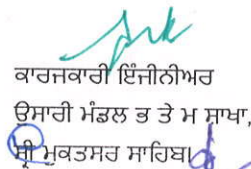 ਕਾਰਜਕਾਰੀ ਇੰਜੀਨੀਅਰ
ਉਸਾਰੀ ਮੰਡਲ ਭ ਤੇ ਮ ਸਾਖਾ,
ਸ੍ਰੀ ਮੁਕਤਸਰ ਸਾਹਿਬ।